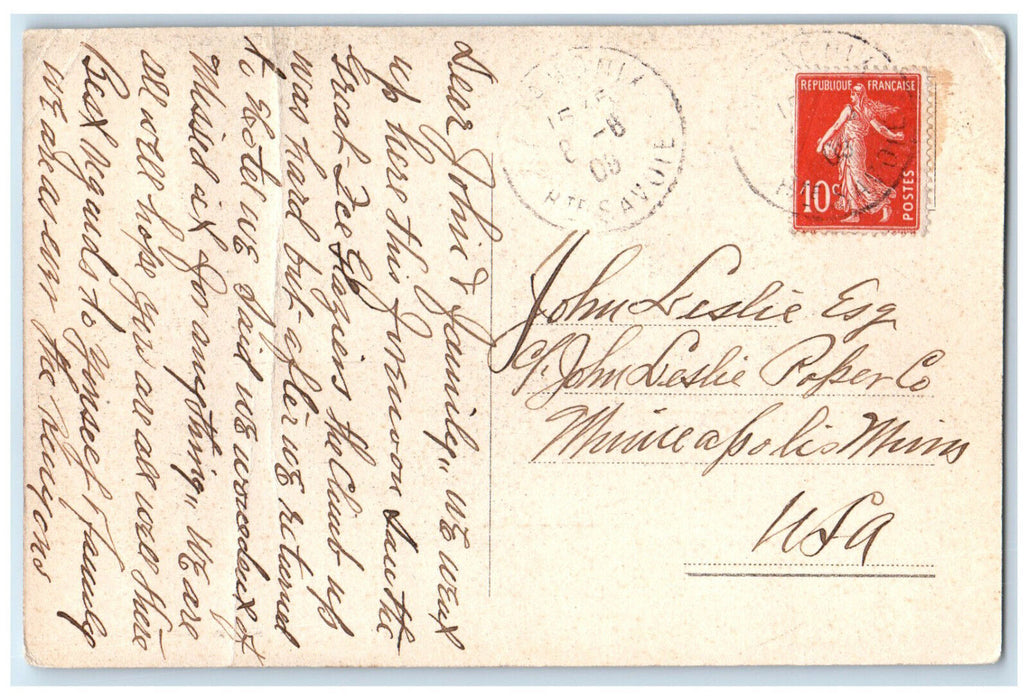 Dear John & family,, WE WENT
up here this forenoon saw the
Great Ice Glaziers the Climb up
was hard but after WE returned
to Hotel WE Said WE wouldent of
Missed it for anything,, WE are
all well hope you are all well there
Best Regards to yourself & family
WE ahear the
REPUBLIQUE FRANÇAISE
10c POSTES
15
8 -8
09
HTE SAVOIE
John Leslie Esq
c/. John Leslie Paper Co
Minneapolis Minn
USA